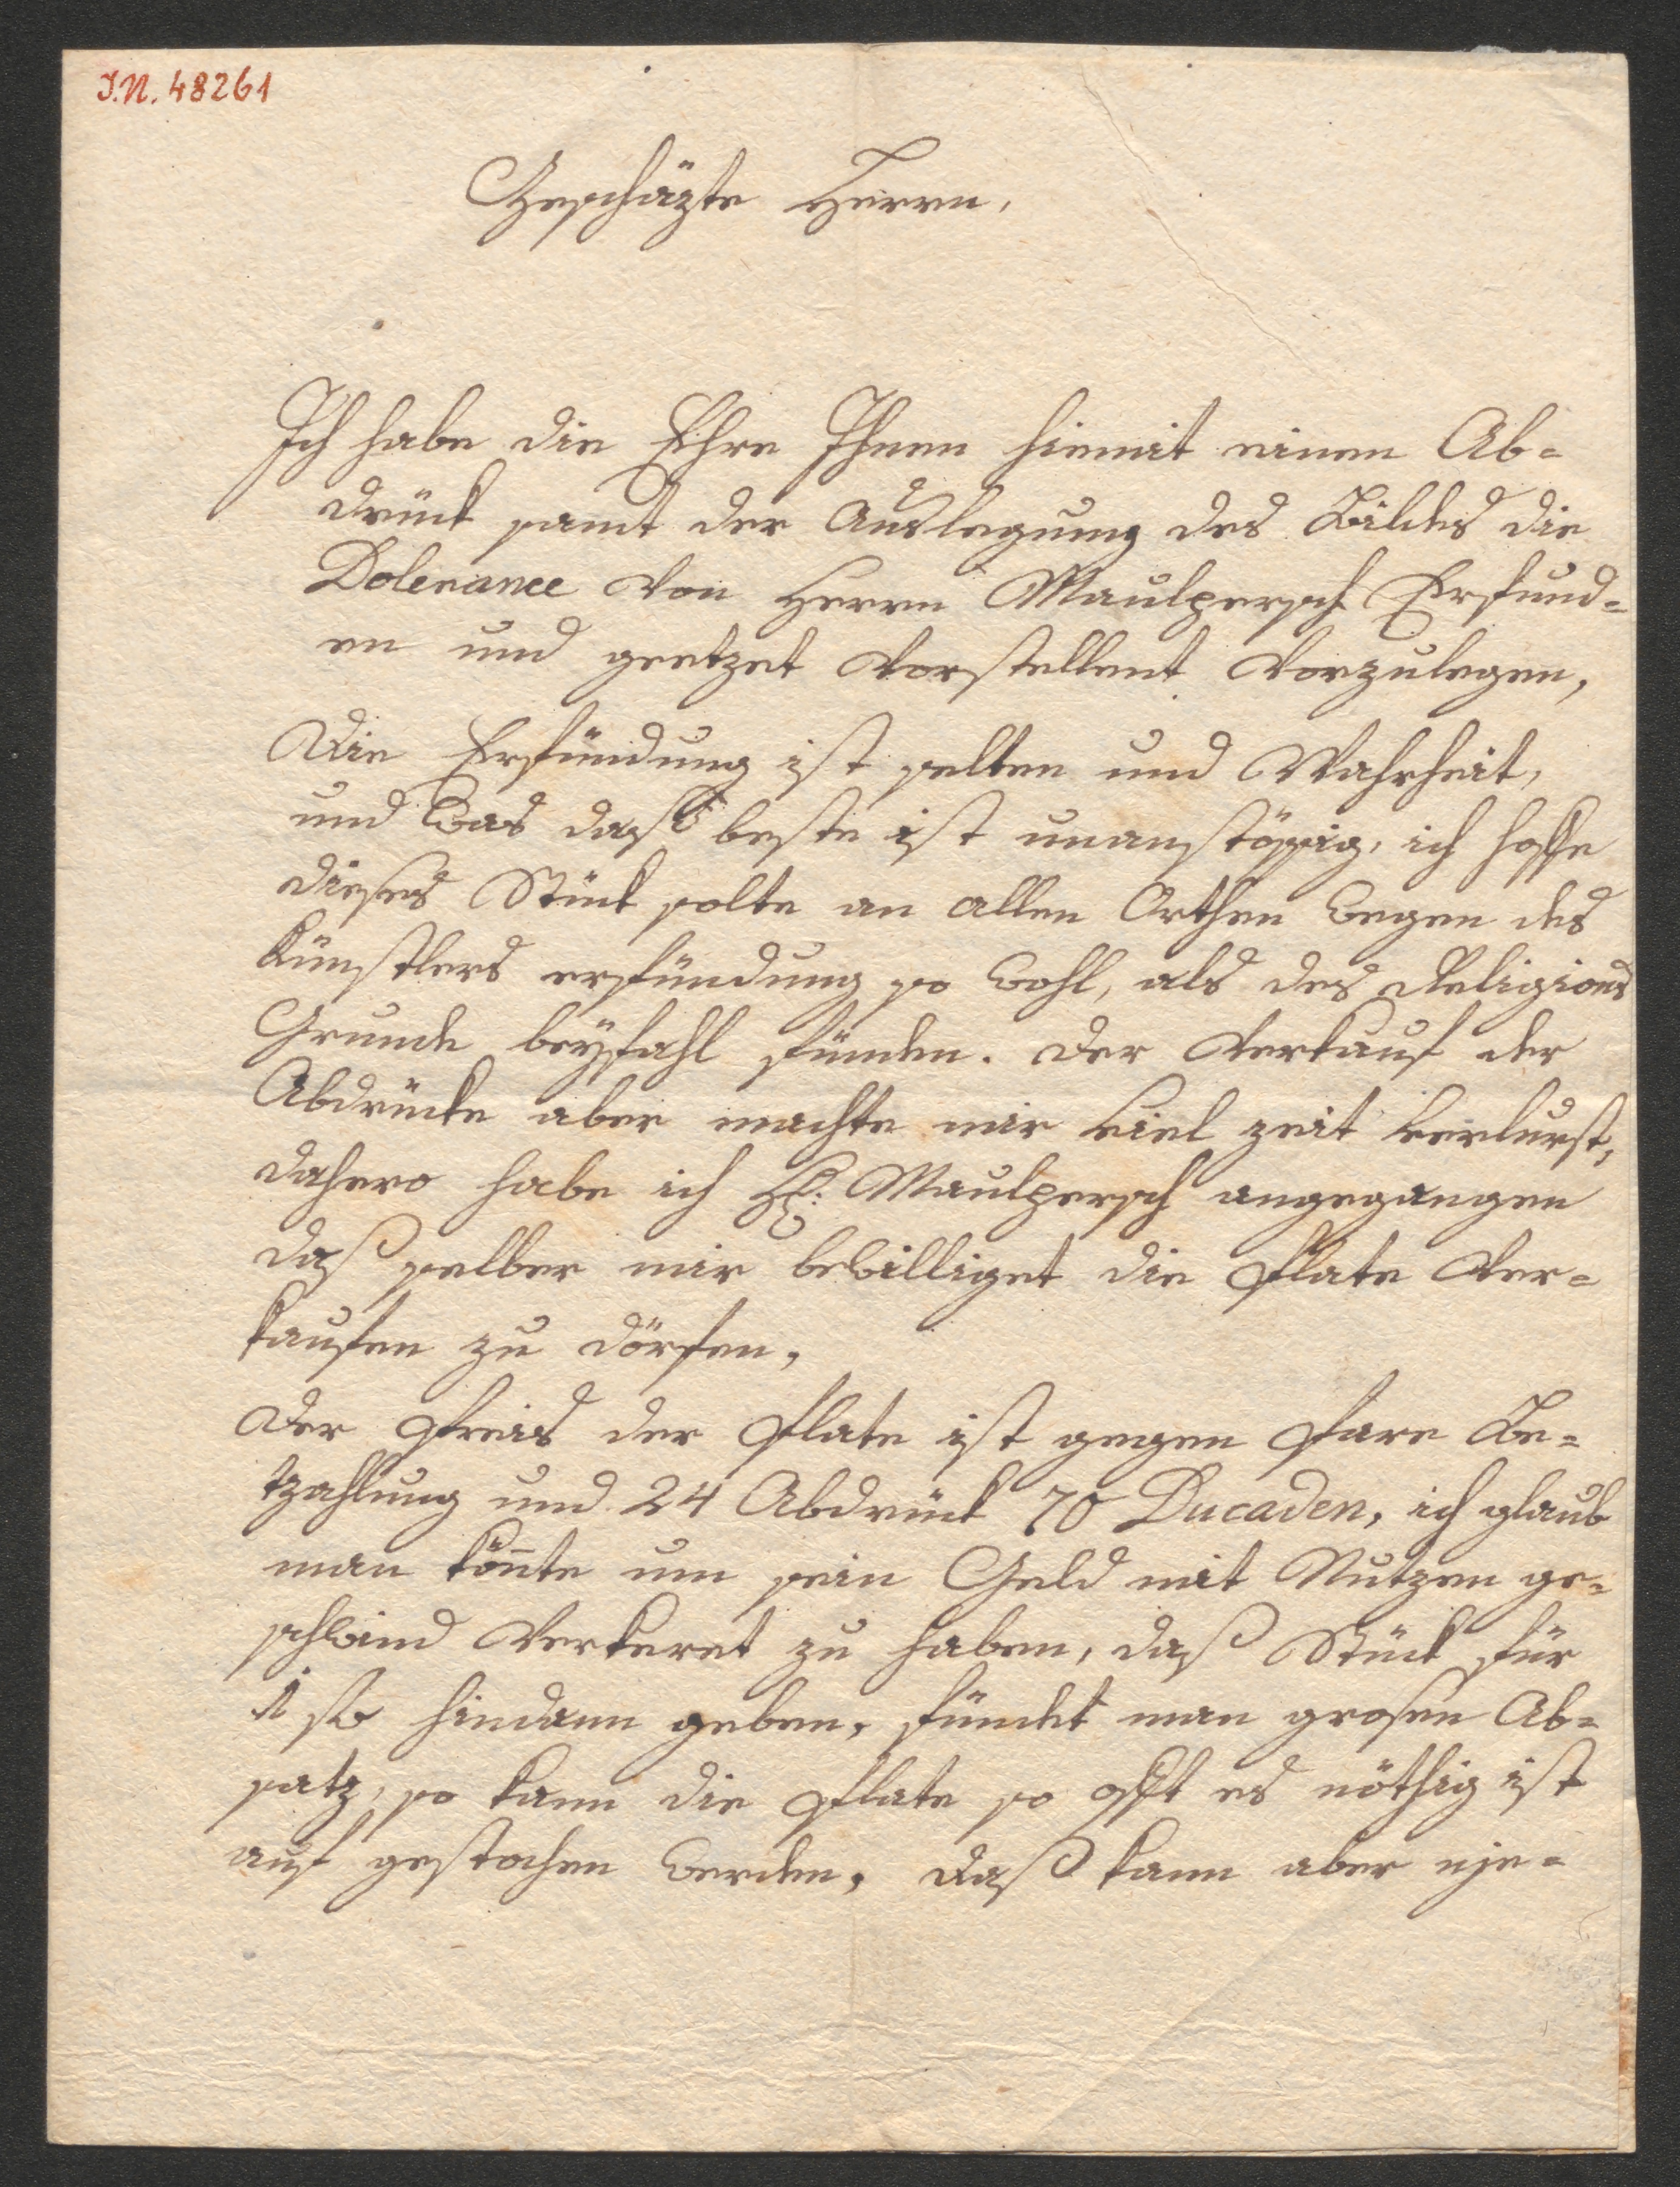 I.N. 48261
Geschäzte Herrn,
Ich habe die Ehre Ihnen hiemit einen Ab=
druck samt der Auslegung des Bildes die
Dolerance von Herrn Maulpersch Erfund=
en und geetzet vorstellent vorzulegen,
Die Erfündung ist selten und Wahrheit,
und was daß beste ist unanstössig, ich hoffe
dieses Stück solte an allen Orthen wegen des
Künstlers erfündung so wohl, als des Religions
Grunde beÿfahl fünden. der Verkauf der
Abdrücke aber machte mir viel zeit verlurst,
dahero habe ich H: Maulpersch angegangen
daß selber mir bewilliget die Plate Ver=
kaufen zu dörfen,
der Preis der Plate ist gegen Pare Be=
tzahlung und 24 Abdrück 70 Ducaden, ich glaub
man kön̄te um sein Geld mit Nutzen ge=
schwind verkeret zu haben, daß Stück für
1 fl hindann geben, fündet man grosen Ab=
satz, so kann die Plate so offt es nöthig ist
auf gestochen werden, daß kann aber nje=